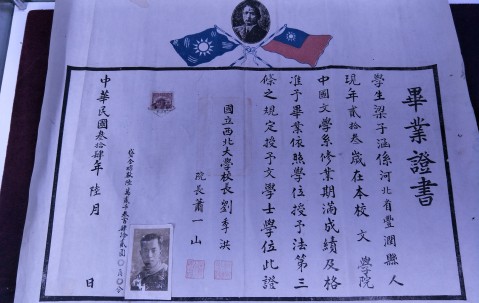 畢業證書
學生梁子涵係河北省豐潤縣人
現年貳拾叁歲在本校文學院
中國文學系修業期滿成績及格
准予畢業依照學位授予法第三
條之規定授予文學士學位此證
國立西北大學校長劉季洪
院長蕭一山
中華民國叁拾肆年陸月 日